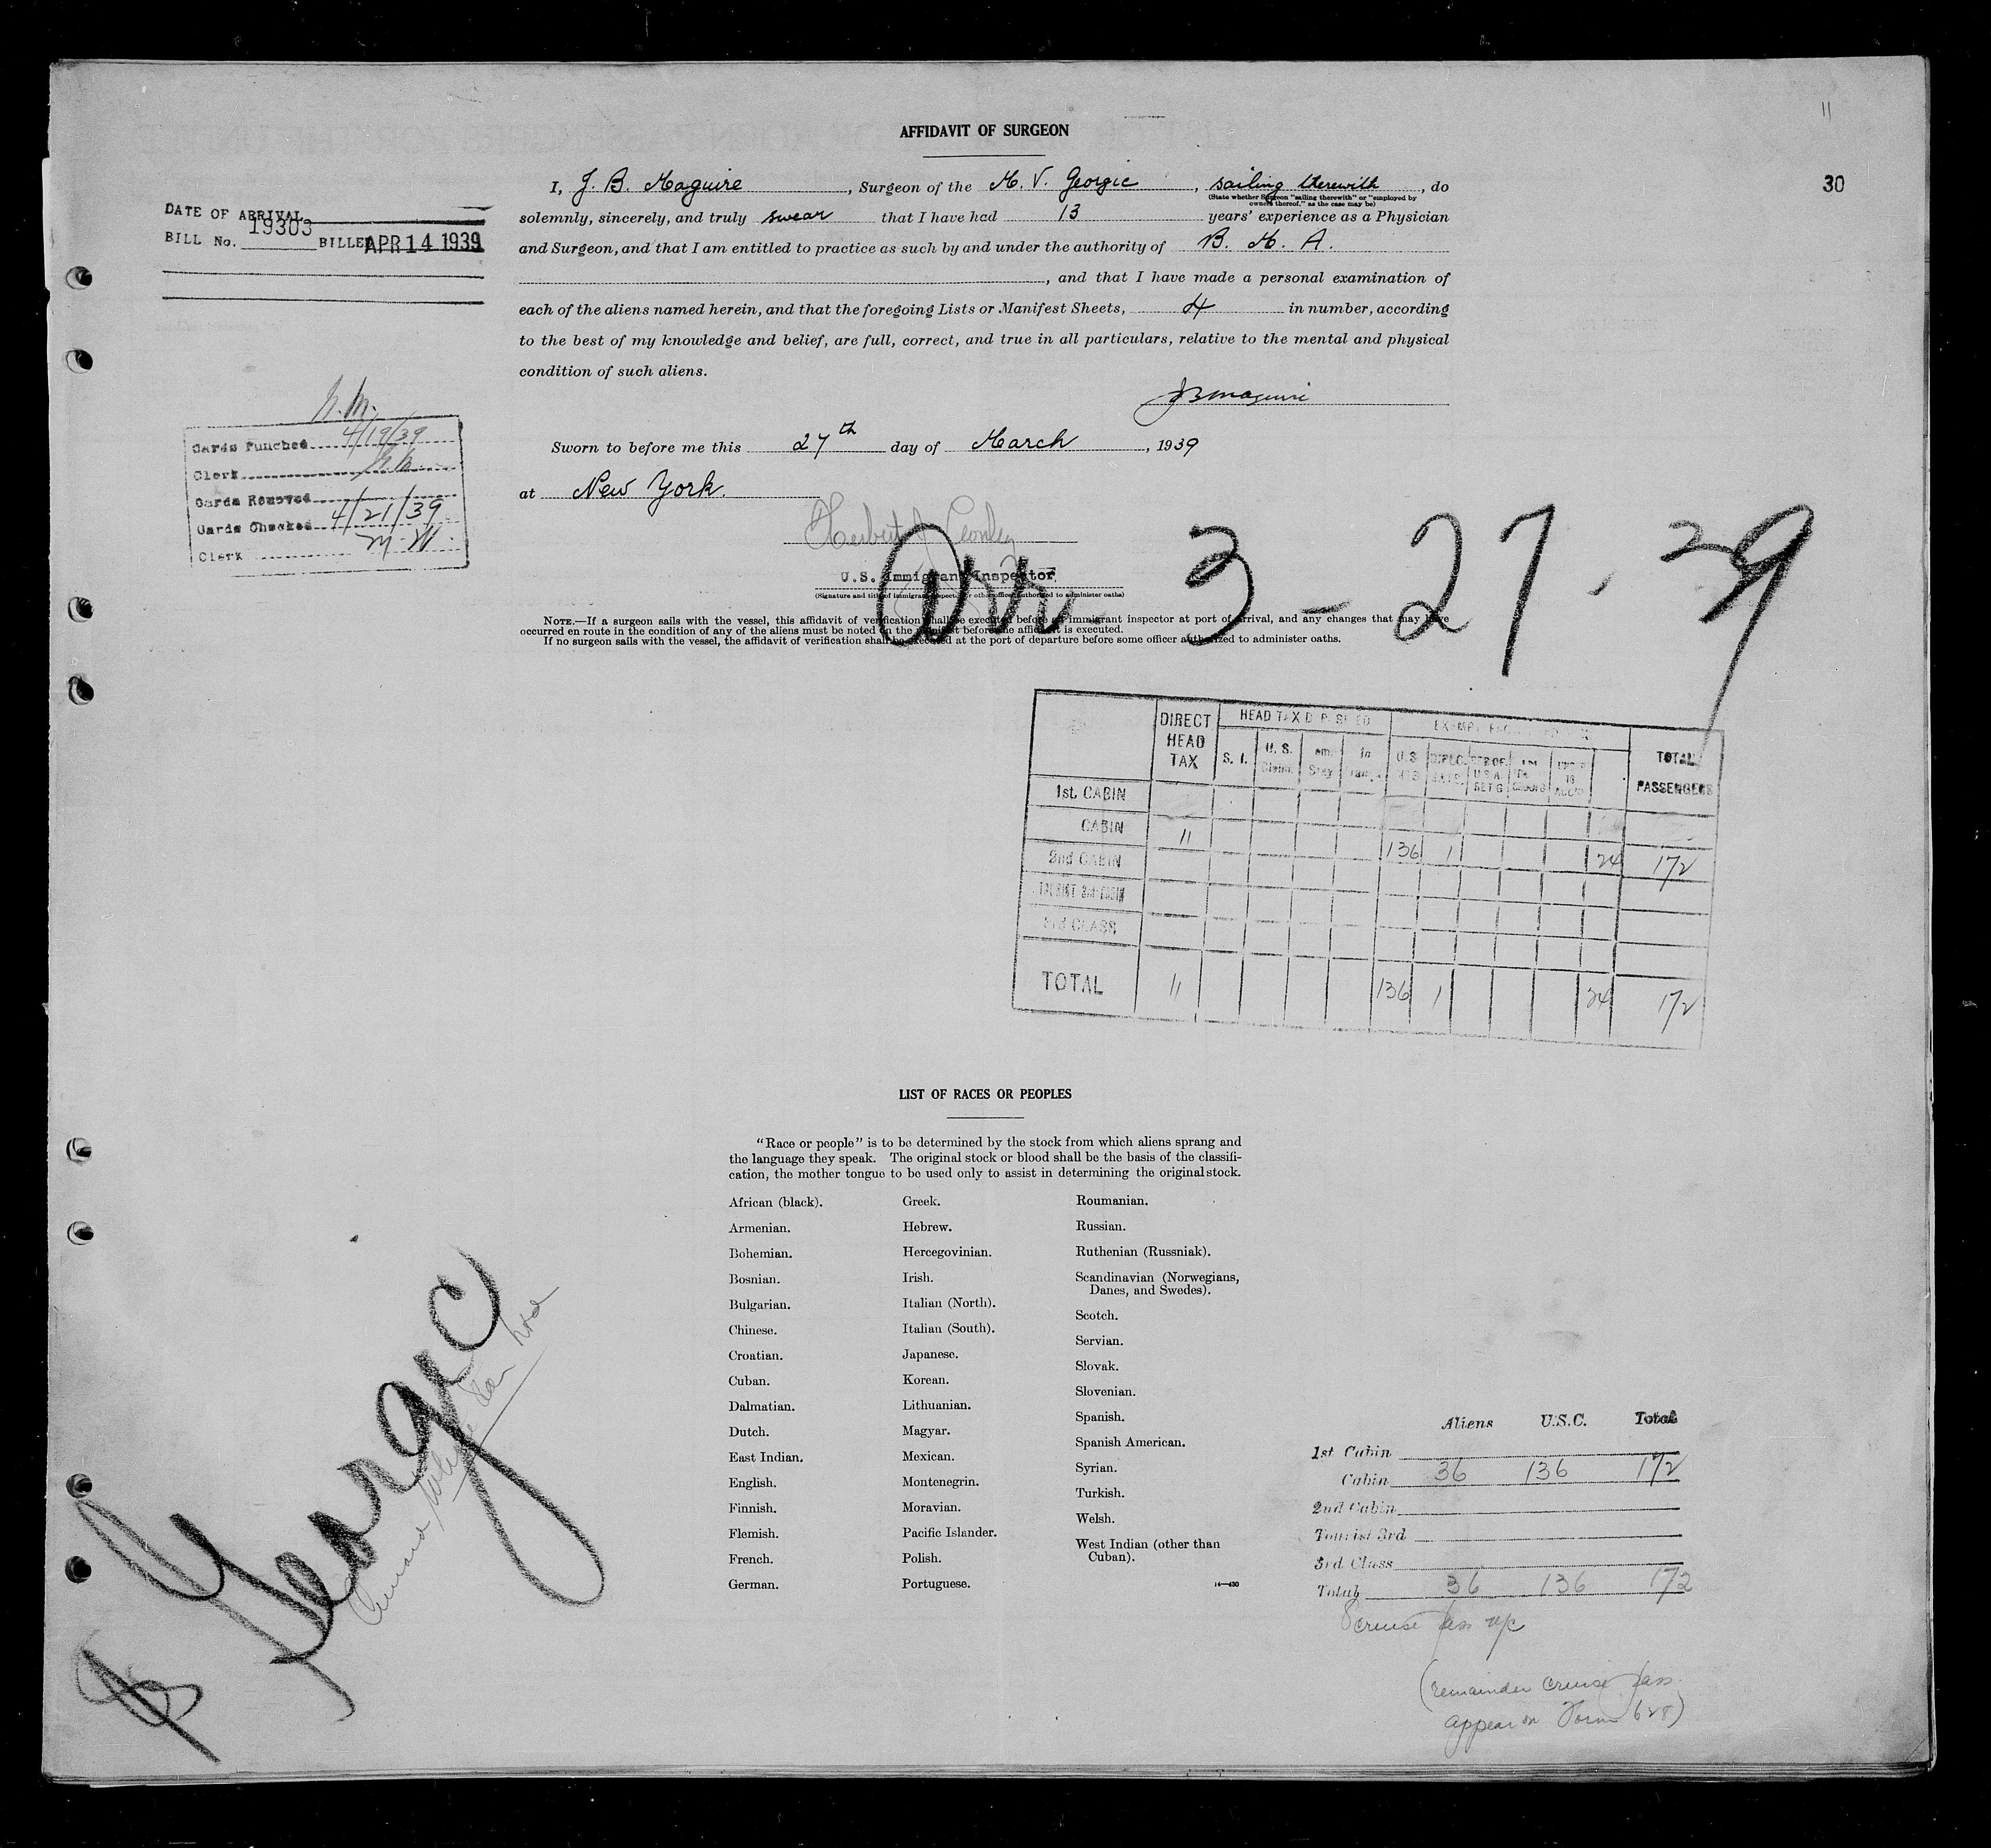 11
30
AFFIDAVIT OF SURGEON
I, J. B. Maguire, Surgeon of the M. V. Georgic, sailing therewith, do
(State whether Surgeon "sailing therewith" or "employed by
owners thereof," as the case may be)
solemnly, sincerely, and truly swear that I have had 13 years' experience as a Physician
and Surgeon, and that I am entitled to practice as such by and under the authority of B. M. A.
, and that I have made a personal examination of
each of the aliens named herein, and that the foregoing Lists or Manifest Sheets, 4 in number, according
to the best of my knowledge and belief, are full, correct, and true in all particulars, relative to the mental and physical
condition of such aliens.
JBMaguire
Sworn to before me this 27th day of March, 1939
at New York.
Herbert J.
U.S. Immigrant Inspector
(Signature and title of immigrant inspector or other officer authorized to administer oaths)
NOTE.—If a surgeon sails with the vessel, this affidavit of verification shall be executed before an immigrant inspector at port of arrival, and any changes that may have
occurred en route in the condition of any of the aliens must be noted on the manifest before the affidavit is executed.
If no surgeon sails with the vessel, the affidavit of verification shall be executed at the port of departure before some officer authorized to administer oaths.
DATE OF ARRIVAL
BILL No. 19303 BILLED APR 14 1939
Cards Punched 4/19/39
Clerk
Cards Removed
Cards Checked 4/21/39
Clerk
Arr 3-27-39
DIRECT HEAD TAX
HEAD TAX
S. I.
U. S.
TOTAL PASSENGERS
1st CABIN
CABIN 11 136 1 24 172
2nd CABIN
TOURIST 3rd CABIN
3rd CLASS
TOTAL 11 136 1 24 172
LIST OF RACES OR PEOPLES
"Race or people" is to be determined by the stock from which aliens sprang and
the language they speak. The original stock or blood shall be the basis of the classifi-
cation, the mother tongue to be used only to assist in determining the original stock.
African (black).
Armenian.
Bohemian.
Bosnian.
Bulgarian.
Chinese.
Croatian.
Cuban.
Dalmatian.
Dutch.
East Indian.
English.
Finnish.
Flemish.
French.
German.
Greek.
Hebrew.
Hercegovinian.
Irish.
Italian (North).
Italian (South).
Japanese.
Korean.
Lithuanian.
Magyar.
Mexican.
Montenegrin.
Moravian.
Pacific Islander.
Polish.
Portuguese.
Roumanian.
Russian.
Ruthenian (Russniak).
Scandinavian (Norwegians,
Danes, and Swedes).
Scotch.
Servian.
Slovak.
Slovenian.
Spanish.
Spanish American.
Syrian.
Turkish.
Welsh.
West Indian (other than
Cuban).
14—430
Georgic
Cunard White Star
Aliens U.S.C. Total
1st Cabin
Cabin 36 136 172
2nd Cabin
Tourist 3rd
3rd Class
Total 36 136 172
cruise pass
(remainder cruise pass.
appear on Form 628)